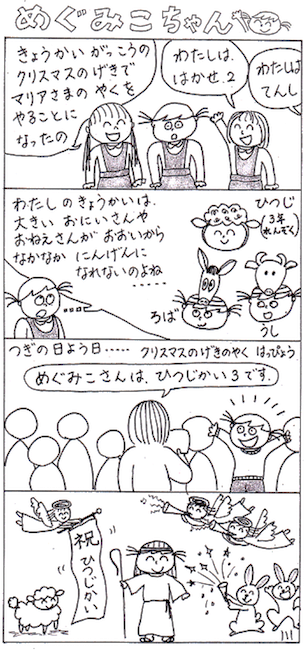 めぐみこちゃん
きょうかい がっこうの
クリスマスの げきで
マリアさまの やくを
やることに
なったの
わたしは、
はかせ.2
わたしは
てんし
わたしの きょうかいは、
大きい おにいさんや
おねえさんが おおいから
なかなか にんげんに
なれないのよね
‥‥‥
ひつじ
(3年
れんぞく)
ろば
うし
つぎの日よう日‥‥‥ クリスマスのげきのやく はっぴょう
めぐみこさんは、ひつじかい3です.
祝
ひつじかい